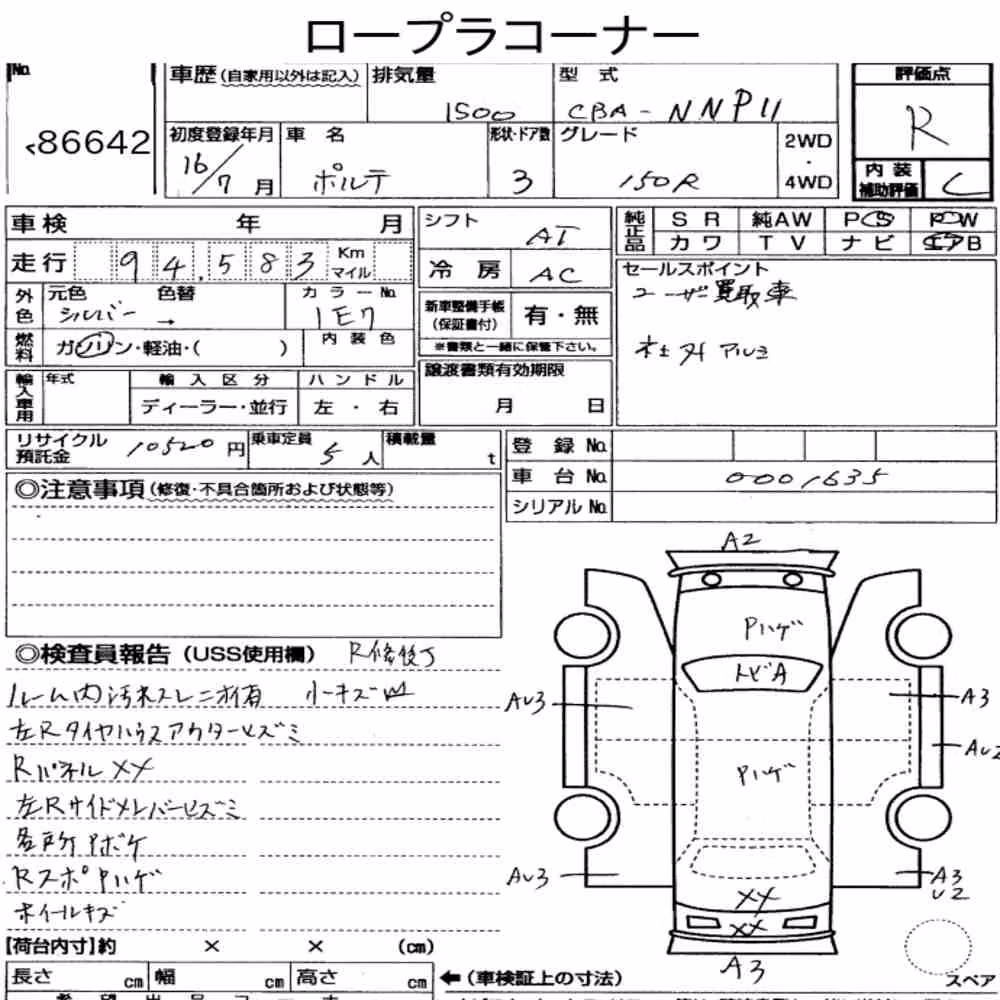 ロープラコーナー
No.
86642
車歴 (自家用以外は記入)
排気量
1500
型式
CBA-NNP11
評価点
R
初度登録年月
16/7月
車名
ポルテ
形状・ドア数
3
グレード
150R
2WD
・
4WD
内装
補助評価
C
車検 年 月
走行 94,583 Km マイル
シフト
AT
冷房
AC
純正品
SR 純AW PS PW
カワ TV ナビ エアB
外色
元色 色替
シルバー →
カラーNo
1E7
燃料
ガソリン・軽油・( )
内装色
新車整備手帳
(保証書付)
有・無
※書類と一緒に保管下さい。
セールスポイント
ユーザー買取車
社外アルミ
輸入車用
年式
輸入区分
ディーラー・並行
ハンドル
左・右
譲渡書類有効期限
月 日
リサイクル
預託金
10520円
乗車定員
5人
積載量
t
登録No.
車台No.
0001635
シリアルNo.
◎注意事項 (修復・不具合箇所および状態等)
◎検査員報告 (USS使用欄) R修復了
ルーム内汚れスレニオイ有 小キズ凹
左Rタイヤハウスアウターヒズミ
RパネルXX
左Rサイドメンバーヒズミ
各所Pボケ
RスポPハゲ
ホイールキズ
A2
Pハゲ
トビA
AU3
A3
AU2
Pハゲ
AU3
A3
U2
XX
XX
A3
スペア
【荷台内寸】約 × × (cm)
長さ cm 幅 cm 高さ cm
←(車検証上の寸法)